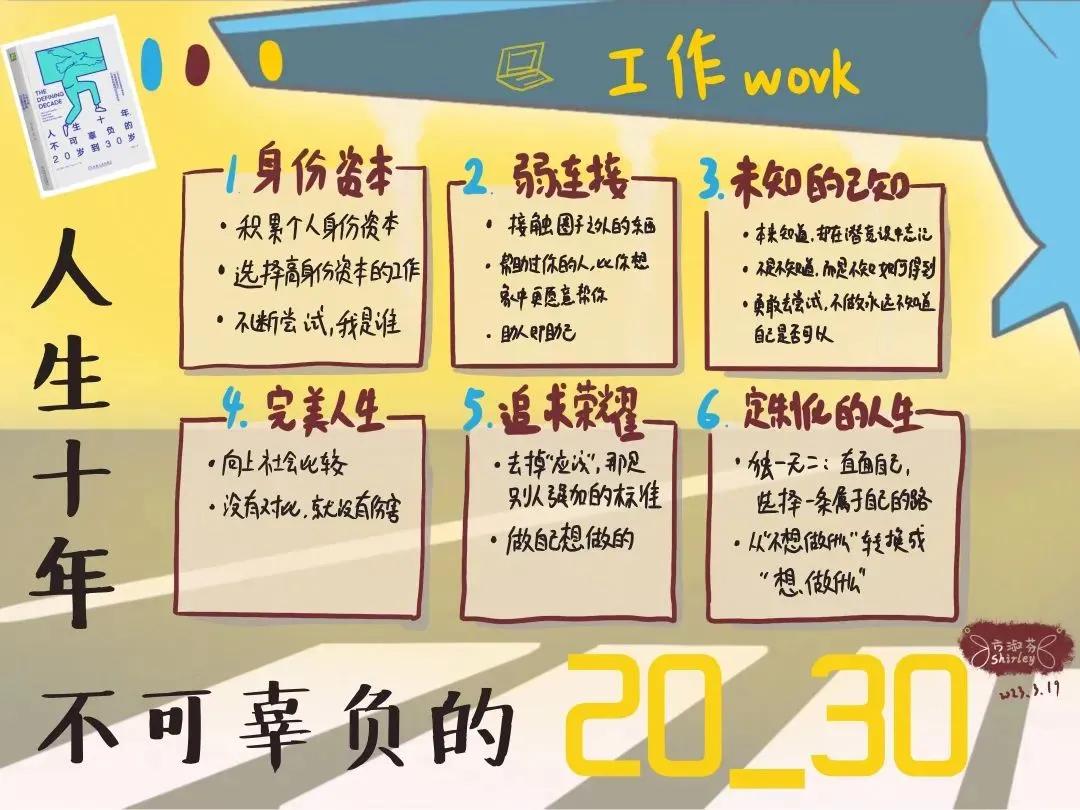 THE
DEFINING
DECADE
人生十年
不可辜负的
20岁到30岁
工作 work
1. 身份资本
• 积累个人身份资本
• 选择高身份资本的工作
• 不断尝试，我是谁
2. 弱连接
• 接触圈子之外的东西
• 帮助过你的人，比你想
象中更愿意帮你
• 助人即自己
3. 未知的已知
• 本来知道，却在潜意识中忘记
• 不是不知道，而是不知如何得到
• 勇敢去尝试，不做永远不知道
自己是否可以
4. 完美人生
• 向上社会比较
• 没有对比，就没有伤害
5. 追求荣耀
• 去掉“应该”，那是
别人强加的标准
• 做自己想做的
6. 定制化的人生
• 独一无二：直面自己，
选择一条属于自己的路
• 从“不想做什么”转换成
“想做什么”
人生十年
不可辜负的 20_30
方淑芬
Shirley
2023.3.19